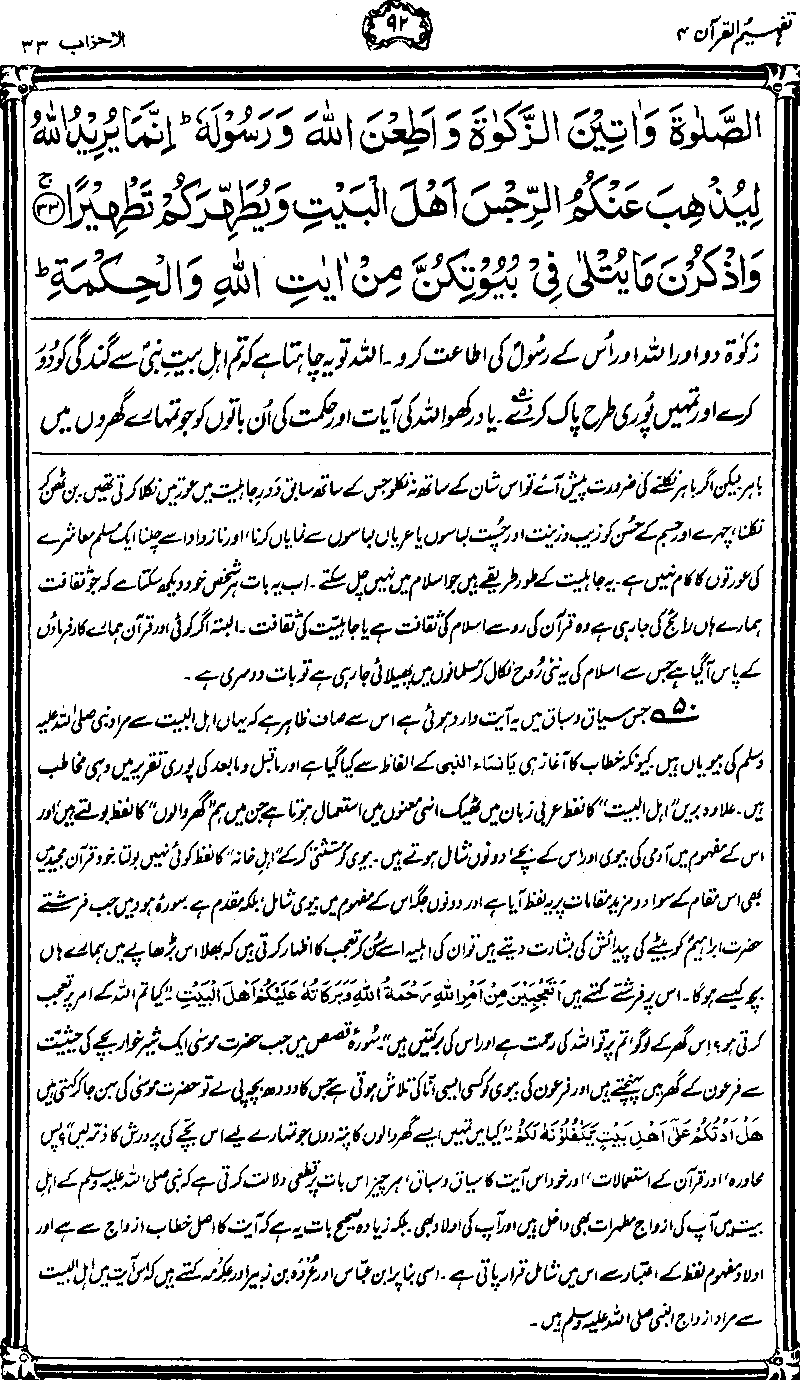 تفہیم القرآن ۴
۹۲
الاحزاب ۳۳
الصَّلٰوةَ وَاٰتِيْنَ الزَّكٰوةَ وَاَطِعْنَ اللهَ وَرَسُوْلَهٗ ؕ اِنَّمَا يُرِيْدُ اللهُ
لِيُذْهِبَ عَنْكُمُ الرِّجْسَ اَهْلَ الْبَيْتِ وَيُطَهِّرَكُمْ تَطْهِيْرًا ﴿۳۳﴾ ج
وَاذْكُرْنَ مَا يُتْلٰى فِيْ بُيُوْتِكُنَّ مِنْ اٰيٰتِ اللهِ وَالْحِكْمَةِ ؕ
زکوٰۃ دو اور اللہ اور اُس کے رسولؐ کی اطاعت کرو۔ اللہ تو یہ چاہتا ہے کہ تم اہلِ بیتِ نبیؐ سے گندگی کو دُور
کرے اور تمہیں پُوری طرح پاک کر دے۵۰۔ یاد رکھو اللہ کی آیات اور حکمت کی اُن باتوں کو جو تمہارے گھروں میں
باہر لیکن اگر باہر نکلنے کی ضرورت پیش آئے تو اس شان کے ساتھ نہ نکلو جس کے ساتھ سابق دَورِ جاہلیت میں عورتیں نکلا کرتی تھیں۔ بن ٹھن کر
نکلنا، چہرے اور جسم کے حُسن کو زیب و زینت اور چُست لباسوں یا عریاں لباسوں سے نمایاں کرنا، اور ناز و ادا سے چلنا ایک مسلم معاشرے
کی عورتوں کا کام نہیں ہے۔ یہ جاہلیت کے طور طریقے ہیں جو اسلام میں نہیں چل سکتے۔ اب یہ بات ہر شخص خود دیکھ سکتا ہے کہ جو ثقافت
ہمارے ہاں رائج کی جا رہی ہے وہ قرآن کی رو سے اسلام کی ثقافت ہے یا جاہلیت کی ثقافت۔ البتہ اگر کوئی اور قرآن ہمارے کارفرماؤں
کے پاس آگیا ہے جس سے اسلام کی یہ نئی رُوح نکال کر مسلمانوں میں پھیلائی جا رہی ہے تو بات دوسری ہے۔
۵۰ جس سیاق و سباق میں یہ آیت وارد ہوئی ہے اس سے صاف ظاہر ہے کہ یہاں اہل البیت سے مراد نبی صلی اللہ علیہ
وسلم کی بیویاں ہیں۔ کیونکہ خطاب کا آغاز ہی یا نساء النبی کے الفاظ سے کیا گیا ہے اور ماقبل و مابعد کی پوری تقریر میں وہی مخاطب
ہیں۔ علاوہ بریں "اہل البیت" کا لفظ عربی زبان میں ٹھیک انہی معنوں میں استعمال ہوتا ہے جن میں ہم "گھر والوں" کا لفظ بولتے ہیں، اور
اس کے مفہوم میں آدمی کی بیوی اور اس کے بچے، دونوں شامل ہوتے ہیں۔ بیوی کو مستثنیٰ کر کے "اہلِ خانہ" کا لفظ کوئی نہیں بولتا۔ خود قرآن مجید میں
بھی اس مقام کے سوا دو مزید مقامات پر یہ لفظ آیا ہے اور دونوں جگہ اس کے مفہوم میں بیوی شامل، بلکہ مقدم ہے۔ سورۂ ہود میں جب فرشتے
حضرت ابراہیمؑ کو بیٹے کی پیدائش کی بشارت دیتے ہیں تو ان کی اہلیہ اسے سُن کر تعجب کا اظہار کرتی ہیں کہ بھلا اس بڑھاپے میں ہمارے ہاں
بچہ کیسے ہوگا۔ اس پر فرشتے کہتے ہیں اَتَعْجَبِيْنَ مِنْ اَمْرِ اللهِ رَحْمَةُ اللهِ وَبَرَكَاتُهٗ عَلَيْكُمْ اَهْلَ الْبَيْتِ۔ "کیا تم اللہ کے امر پر تعجب
کرتی ہو؟ اس گھر کے لوگو! تم پر تو اللہ کی رحمت ہے اور اس کی برکتیں ہیں" سُورۂ قصص میں جب حضرت موسیٰ ایک شیر خوار بچے کی حیثیت
سے فرعون کے گھر میں پہنچتے ہیں اور فرعون کی بیوی کو کسی ایسی انّا کی تلاش ہوتی ہے جس کا دودھ بچہ پی لے تو حضرت موسیٰ کی بہن جا کر کہتی ہیں
هَلْ اَدُلُّكُمْ عَلٰى اَهْلِ بَيْتٍ يَّكْفُلُوْنَهٗ لَكُمْ۔ "کیا میں تمہیں ایسے گھر والوں کا پتہ دوں جو تمہارے لیے اس بچے کی پرورش کا ذمہ لیں"؟ پس
محاورہ، اور قرآن کے استعمالات، اور خود اس آیت کا سیاق و سباق، ہر چیز اس بات پر قطعی دلالت کرتی ہے کہ نبی صلی اللہ علیہ وسلم کے اہلِ
بیت میں آپ کی ازواجِ مطہرات بھی داخل ہیں اور آپ کی اولاد بھی۔ بلکہ زیادہ صحیح بات یہ ہے کہ آیت کا اصل خطاب ازواج سے ہے اور
اولاد مفہومِ لفظ کے اعتبار سے اس میں شامل قرار پاتی ہے۔ اسی بنا پر ابن عباس اور عُروَہ بن زبیر اور عِکرمہ کہتے ہیں کہ اس آیت میں اہل البیت
سے مراد ازواج النبی صلی اللہ علیہ وسلم ہیں۔